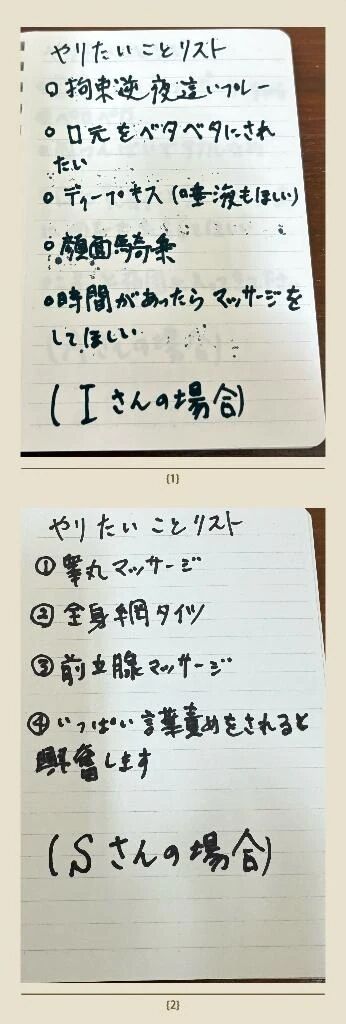 やりたいことリスト
○拘束逆夜這いプレー
○口元をベタベタにされ
たい
○ディープキス(唾液もほしい)
○顔面騎乗
○時間があったらマッサージを
してほしい
(Iさんの場合)
{1}
やりたいことリスト
①睾丸マッサージ
②全身網タイツ
③前立腺マッサージ
④いっぱい言葉責めをされると
興奮します
(Sさんの場合)
{2}